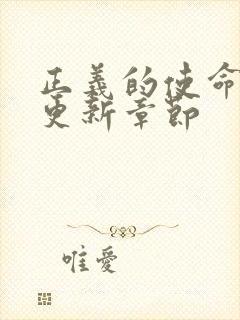 正義的使命
更新章節
唯愛